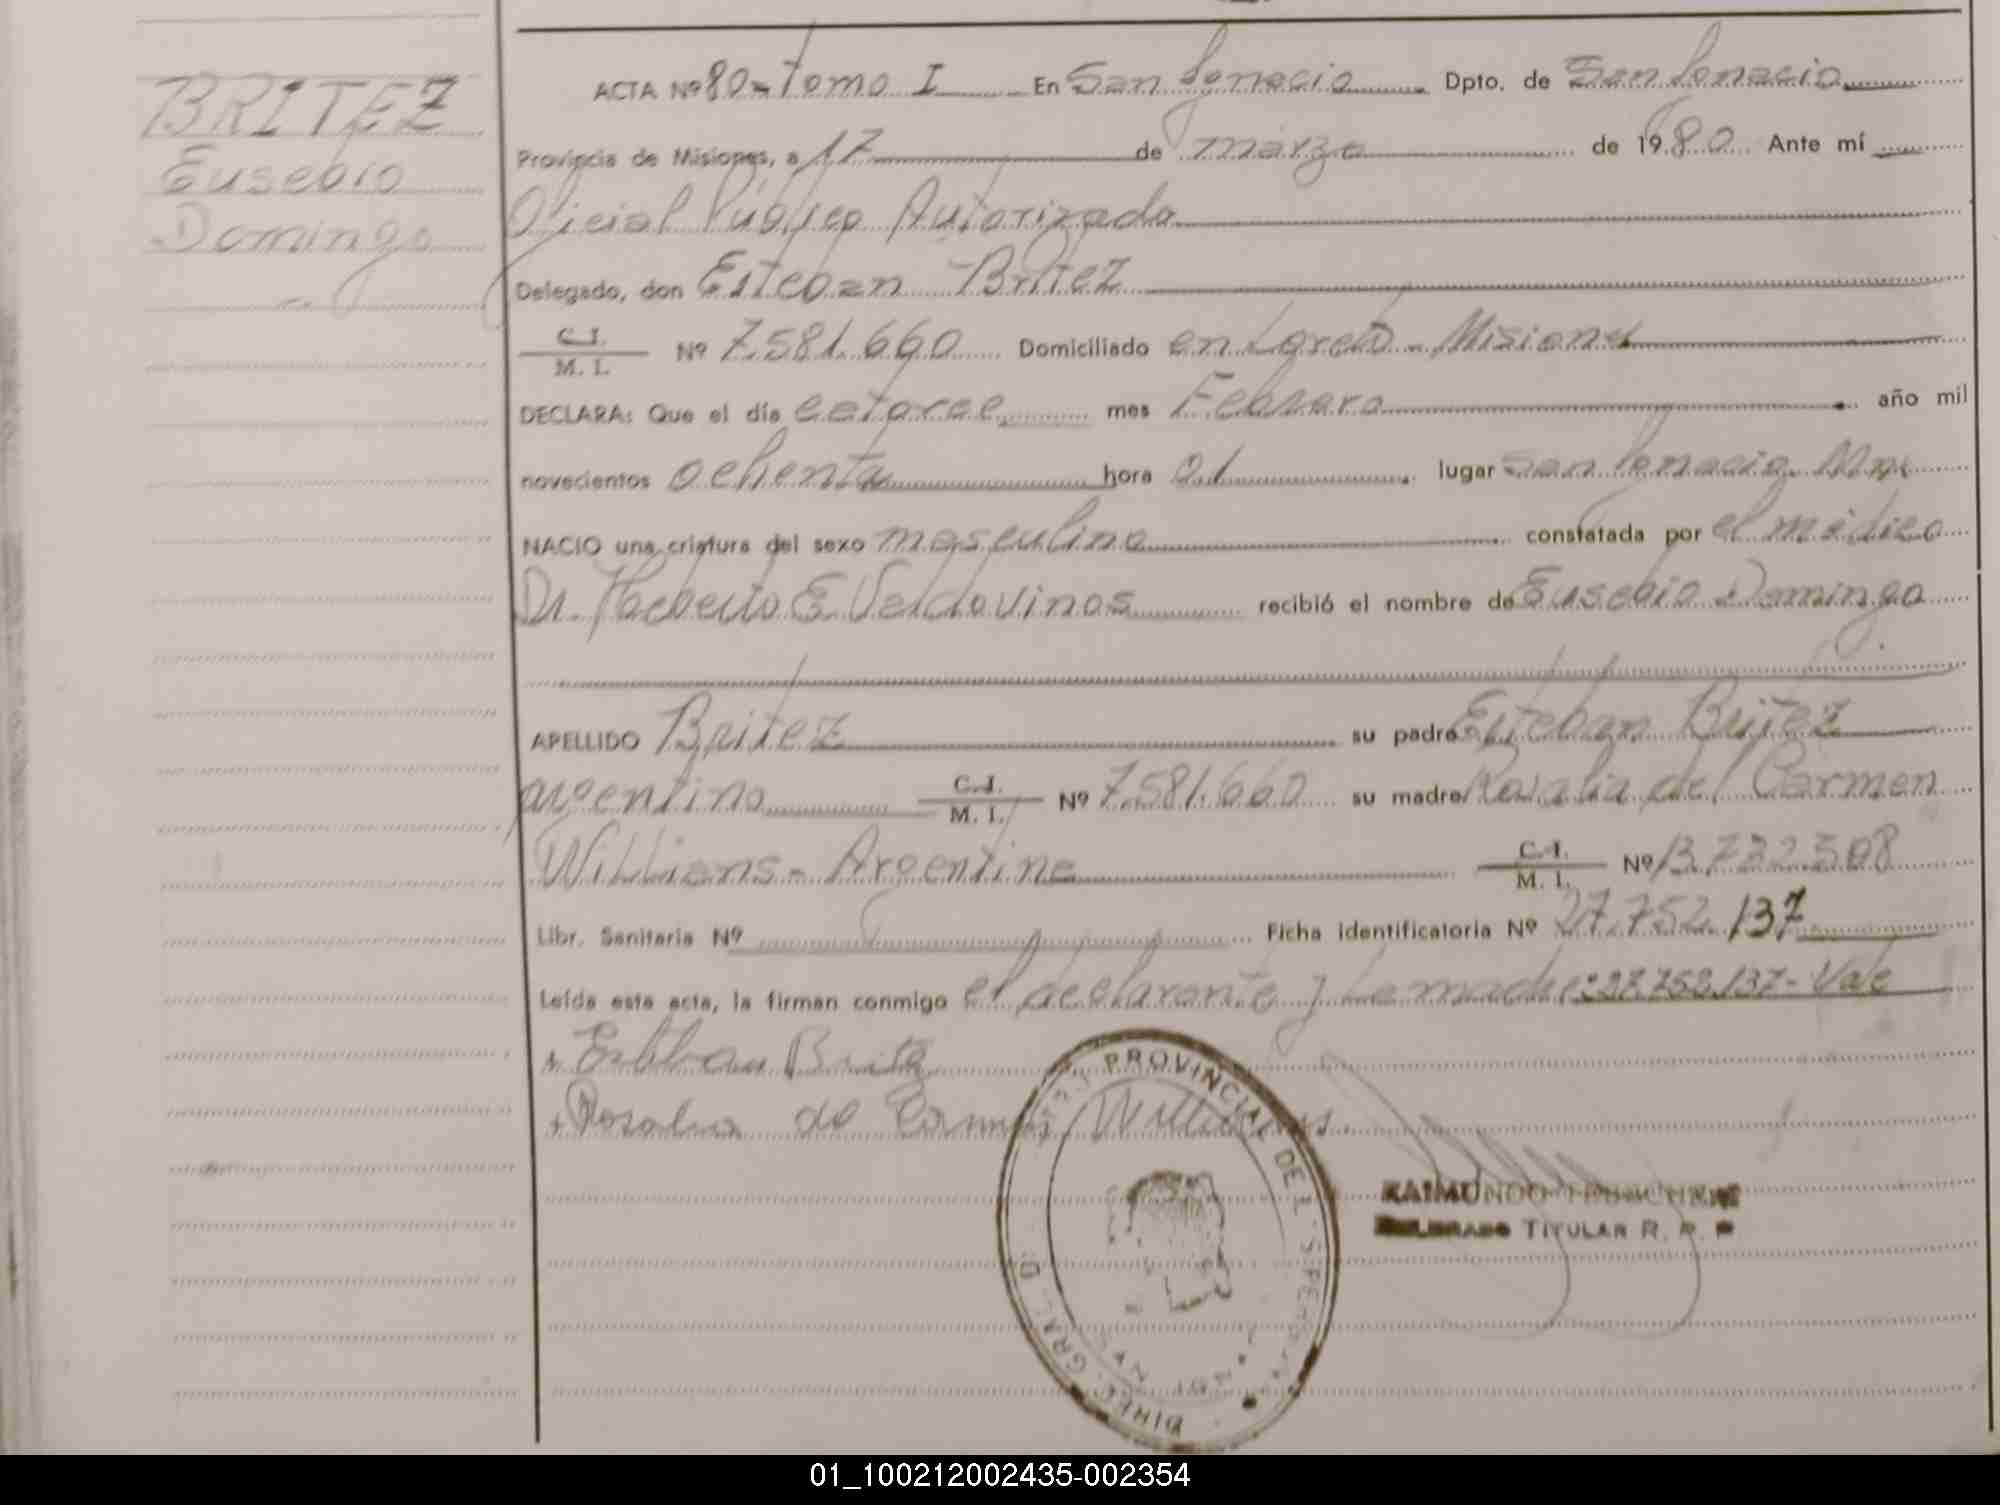 BRITEZ
Eusebio
Domingo
ACTA Nº 80 - tomo I En San Ignacio Dpto. de San Ignacio
Provincia de Misiones, a 17 de marzo de 1980 Ante mí
Oficial Público Autorizado
Delegado, don Esteban Britez
C. I.
M. I. Nº 7.581.660 Domiciliado en Loreto - Misiones
DECLARA: Que el día catorce mes Febrero año mil
novecientos ochenta hora 01 lugar San Ignacio Mnes
NACIO una criatura del sexo masculino constatada por el médico
Dr. E. Valdovinos recibió el nombre de Eusebio Domingo
APELLIDO Britez su padre Esteban Britez
argentino C. I.
M. I. Nº 7.581.660 su madre Rosalia del Carmen
Williams - Argentina C. I.
M. I. Nº 13.732.508
Libr. Sanitaria Nº Ficha identificatoria Nº 27.752.137
Leída esta acta, la firman conmigo el declarante y la madre: 27.752.137 - Vale
Esteban Britez
Rosalia del Carmen Williams.
DIREC. GRAL. D PROVINCIAL DE L
RAIMUNDO
DELEGADO TITULAR R. P.
01_100212002435-002354